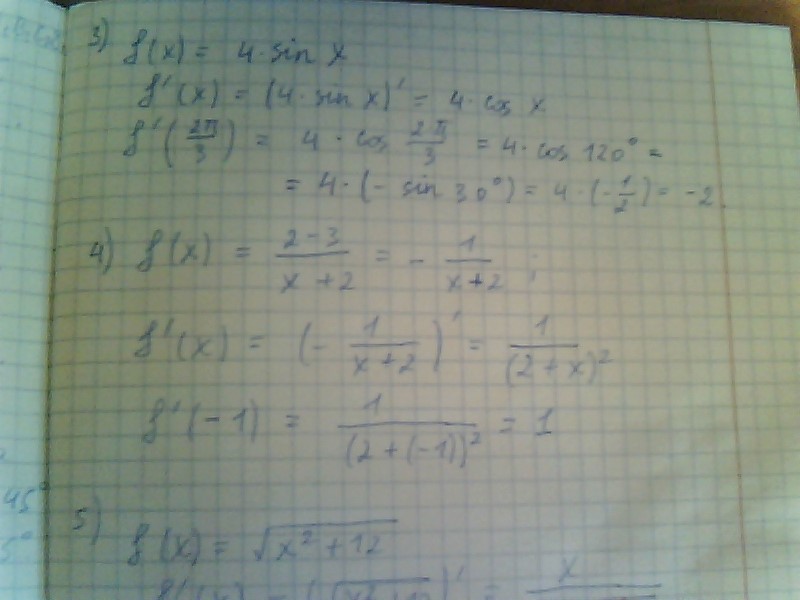 3) f(x) = 4·sin x
f'(x) = (4·sin x)' = 4·cos x
f'(2π/3) = 4·cos 2π/3 = 4·cos 120° =
= 4·(- sin 30°) = 4·(-1/2) = -2.
4) f(x) = (2-3)/(x+2) = - 1/(x+2);
f'(x) = (- 1/(x+2))' = 1/(2+x)²
f'(-1) = 1/(2+(-1))² = 1
5) f(x) = √(x²+12)
45°
5°